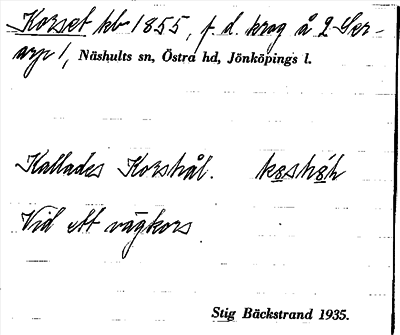 Korset kb 1855, f. d. krog å 2 Ser-
arp 1, Näshults sn, Östra hd, Jönköpings l.
Kallades Korshål.
Vid ett vägkors
Stig Bäckstrand 1935.